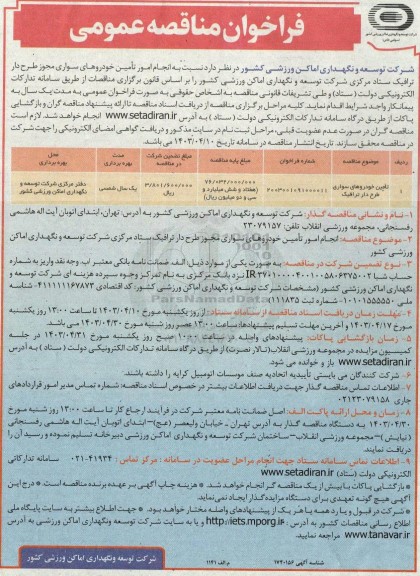 فراخوان مناقصه عمومی
شرکت توسعه و نگهداری اماکن ورزشی کشور در نظر دارد نسبت به انجام امور تأمین خودروهای سواری مجوز طرح دار
ترافیک ستاد مرکزی شرکت توسعه و نگهداری اماکن ورزشی کشور را بر اساس قانون برگزاری مناقصات از طریق سامانه تدارکات
الکترونیکی دولت (ستاد) و طی تشریفات قانونی مناقصه به اشخاص حقوقی به صورت فراخوان عمومی به مدت یک سال به
پیمانکار واجد شرایط اقدام نماید. کلیه مراحل برگزاری مناقصه از دریافت اسناد مناقصه تا ارائه پیشنهاد مناقصه گران و بازگشایی
پاکات از طریق درگاه سامانه تدارکات الکترونیکی دولت (ستاد) به آدرس www.setadiran.ir انجام خواهد شد. لازم است
مناقصه گران در صورت عدم عضویت قبلی، مراحل ثبت نام در سایت مذکور و دریافت گواهی امضای الکترونیکی را جهت شرکت
در مناقصه محقق سازند. تاریخ انتشار مناقصه در سامانه تاریخ ۱۴۰۳/۰۴/۱۰ می باشد.
ردیف موضوع مناقصه شماره فراخوان مبلغ پایه مناقصه مبلغ تضمین شرکت در مناقصه مدت بهره برداری محل بهره برداری
۱ تأمین خودروهای سواری طرح دار ترافیک ۷۶/۰۳۲/۰۰۰/۰۰۰ (هفتاد و شش میلیارد و سی و دو میلیون ریال) ۳/۸۰۱/۶۰۰/۰۰۰ ریال یک سال شمسی دفتر مرکزی شرکت توسعه و نگهداری اماکن ورزشی کشور
۱- نام و نشانی مناقصه گذار: شرکت توسعه و نگهداری اماکن ورزشی کشور به آدرس تهران، ابتدای اتوبان آیت اله هاشمی
رفسنجانی، مجموعه ورزشی انقلاب تلفن: ۲۳۰۷۹۱۵۷
۲- موضوع مناقصه: انجام امور تأمین خودروهای سواری مجوز طرح دار ترافیک ستاد مرکزی شرکت توسعه و نگهداری اماکن
ورزشی کشور
۳- نوع تضمین شرکت در مناقصه: به صورت یکی از موارد ذیل: الف. ضمانت نامه بانکی معتبر ب. وجه نقد واریز به شماره
نزد بانک مرکزی به نام تمرکز وجوه سپرده هزینه ای شرکت توسعه و
نگهداری اماکن ورزشی کشور (مشخصات شرکت توسعه و نگهداری اماکن ورزشی کشور: کد اقتصادی ۴۱۱۱۱۱۶۷۸۷۳ شناسه
ملی ۱۰۱۰۱۵۵۵۵۵۰ - شماره ثبت ۱۱۱۸۳۵)
۴- مهلت زمان دریافت اسناد مناقصه از سامانه ستاد: از روز یکشنبه مورخ ۱۴۰۳/۰۴/۱۰ تا ساعت ۱۳:۰۰ روز یکشنبه
مورخ ۱۴۰۳/۰۴/۱۷ و آخرین مهلت تسلیم پیشنهادها: ساعت ۱۳:۰۰ عصر روز شنبه مورخ ۱۴۰۳/۰۴/۳۰ می باشد.
۵- زمان بازگشایی پاکات: پیشنهادهای واصله در ساعت ۱۰:۰۰ صبح روز یکشنبه مورخ ۱۴۰۳/۰۴/۳۱ در جلسه
کمیسیون مزایده در مجموعه ورزشی انقلاب (تالار نصرت) از طریق درگاه سامانه تدارکات الکترونیکی دولت (ستاد) به آدرس
www.setadiran.ir باز و خوانده می شود.
۶- شرکت کنندگان می بایستی تأییدیه اتحادیه صنف موسسات اتومبیل کرایه را داشته باشند.
۷- اطلاعات تماس مناقصه گذار جهت دریافت اطلاعات بیشتر در خصوص اسناد مناقصه: شماره تماس مدیر امور قراردادهای
جاری ۰۲۱۲۳۰۷۹۱۵۸
۸- زمان و محل ارائه پاکت الف: اصل ضمانت نامه معتبر شرکت در فرآیند ارجاع کار تا ساعت ۱۳:۰۰ روز شنبه مورخ
۱۴۰۳/۰۴/۳۰ به دستگاه مناقصه گذار به آدرس تهران - خیابان ولیعصر (عج) - ابتدای اتوبان آیت اله هاشمی رفسنجانی
(نیایش) - مجموعه ورزشی انقلاب - ساختمان شرکت توسعه و نگهداری اماکن ورزشی دبیرخانه تسلیم نموده و رسید آن را
دریافت نمایند.
۹- اطلاعات تماس سامانه ستاد جهت انجام مراحل عضویت در سامانه: مرکز تماس: ۴۱۹۳۴-۰۲۱ سامانه تدارکات
الکترونیکی دولت (ستاد) www.setadiran.ir
* بازگشایی پاکات با بیش از یک مناقصه گر انجام خواهد شد. * هزینه چاپ آگهی بر عهده برنده مناقصه است. * درج این
آگهی هیچ گونه تعهدی برای دستگاه مزایده گذار ایجاد نمی نماید.
* شرکت در قبول و یا رد همه یا هر یک از پیشنهادهای واصله مختار خواهد بود. * جهت اطلاع بیشتر به سایت پایگاه ملی
اطلاع رسانی مناقصات کشور به آدرس: http://iets.mporg.ir و یا به سایت شرکت توسعه و نگهداری اماکن ورزشی به آدرس
www.tanavar.ir مراجعه نمایید.
شناسه آگهی ۱۷۴۰۱۵۶ م الف ۱۱۴۱
شرکت توسعه و نگهداری اماکن ورزشی کشور